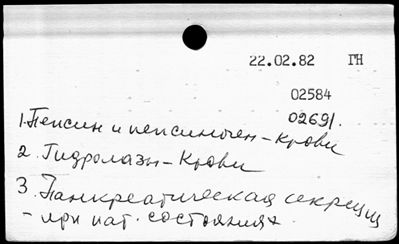 22.02.82 ГН
02584
02691.
1. Пепсин и пепсиноген – крови
2. Гидролазы – Крови
3. Панкреатическая секреция
– при пат. состояниях